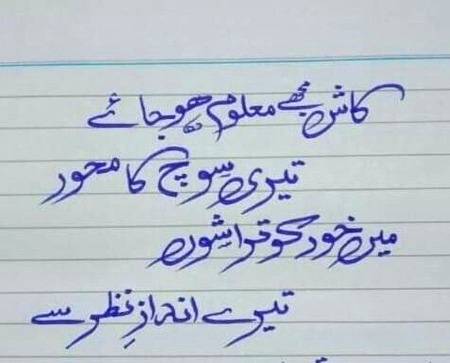 کاش مجھے معلوم ہو جائے
تیری سوچ کا محور
میں خود کو تراشوں
تیرے اندازِ نظر سے